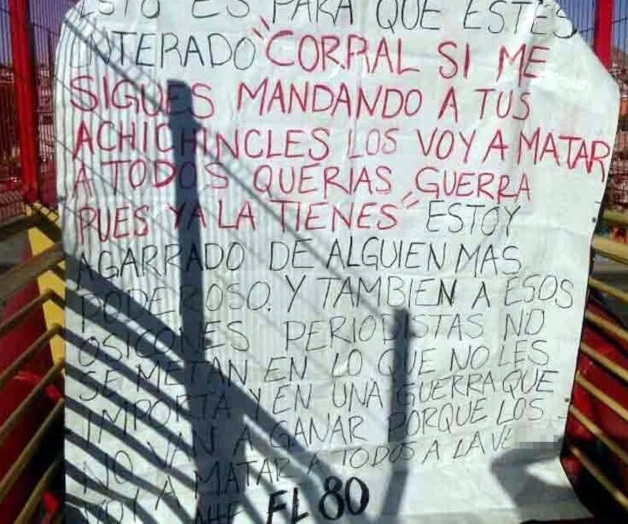 ESTO ES PARA QUE ESTES
ENTERADO "CORRAL SI ME
SIGUES MANDANDO A TUS
ACHICHINCLES LOS VOY A MATAR
A TODOS QUERIAS GUERRA
PUES YA LA TIENES" ESTOY
AGARRADO DE ALGUIEN MAS
PODEROSO. Y TAMBIEN A ESOS
OSICONES PERIODISTAS NO
SE METAN EN LO QUE NO LES
IMPORTA Y EN UNA GUERRA QUE
NO VAN A GANAR PORQUE LOS
VOY A MATAR A TODOS A LA VE
EL 80